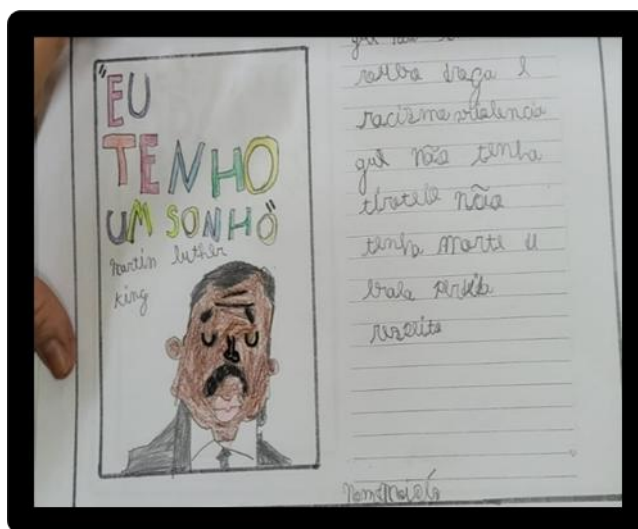 "EU
TENHO
UM SONHO"
Martin luther
King
que não
rouba droga e
racismo violencia
que não tenha
tiroteio não
tenha morte e
bala perdida